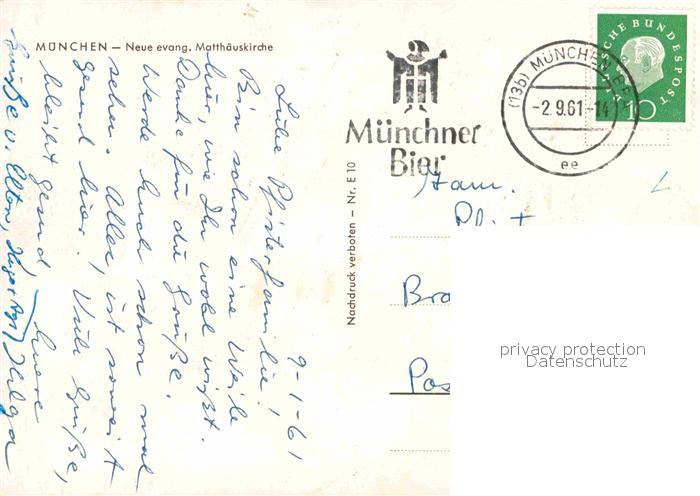 MÜNCHEN — Neue evang. Matthäuskirche
9-1-61
Liebe Pfisterfamilie!
Bin schon eine Weile
hier, wie Ihr wohl wißt.
Danke für die Grüße.
Werde Euch schon mal
sehen. Alles ist soweit
gesund hier. Viele Grüße,
bleibt gesund Eure
Helga
Grüße v. Eltern,
Nachdruck verboten — Nr. E 10
Münchner
Bier
(13b) MÜNCHEN
-2.9.61-14
ee
DEUTSCHE BUNDESPOST
10
Fam.
Bra
Pos
privacy protection
Datenschutz